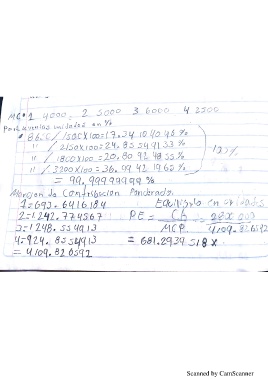 MC=1 4000, 2 5000 3.6000 4 2500
unidades en %
/1500X100=17.34104046%
" /2150X100=24.85549133%
" /1800X100=20.80924855%
" /3200X100=36.99421965%
= 99.99999999%
Margen de Contribución Ponderado
1=693.6416184
2=1242.774567
3=1248.554913
4=924.8554913
= 4109.826592
Equilibrio en unidades
PE = CF =
MCP 4109.826592
= 681.2939518X
Scanned by CamScanner